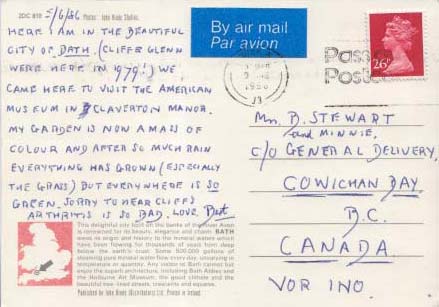 2DC 819
5/6/86
Photos: John Hinde Studios.
HERE I AM IN THE BEAUTIFUL
CITY OF BATH. (CLIFF & GLENN
WERE HERE IN 1979!) WE
CAME HERE TO VISIT THE AMERICAN
MUSEUM IN CLAVERTON MANOR.
MY GARDEN IS NOW A MASS OF
COLOUR AND AFTER SO MUCH RAIN
EVERYTHING HAS GROWN (ESPECIALLY
THE GRASS) BUT EVERYWHERE IS SO
GREEN. SORRY TO HEAR CLIFF'S
ARTHRITIS IS SO BAD. LOVE,
This delightful city built on the banks of the River Avon
is renowned for its beauty, elegance and charm. BATH
owes its origin and history to the mineral waters which
have been flowing for thousands of years from deep
below the earth's crust. Some 500,000 gallons of
steaming pure mineral water flow every day, unvarying in
temperature or quantity. Any visitor to Bath cannot but
enjoy the superb architecture, including Bath Abbey and
the Holburne Art Museum, the good climate and the
beautiful tree-lined streets, crescents and squares.
Published by John Hinde (Distributors) Ltd. Printed in Ireland.
By air mail
Par avion
26P
1986
Mrs. B. STEWART
and MINNIE,
C/O GENERAL DELIVERY,
COWICHAN BAY.
B.C.
CANADA
VOR INO